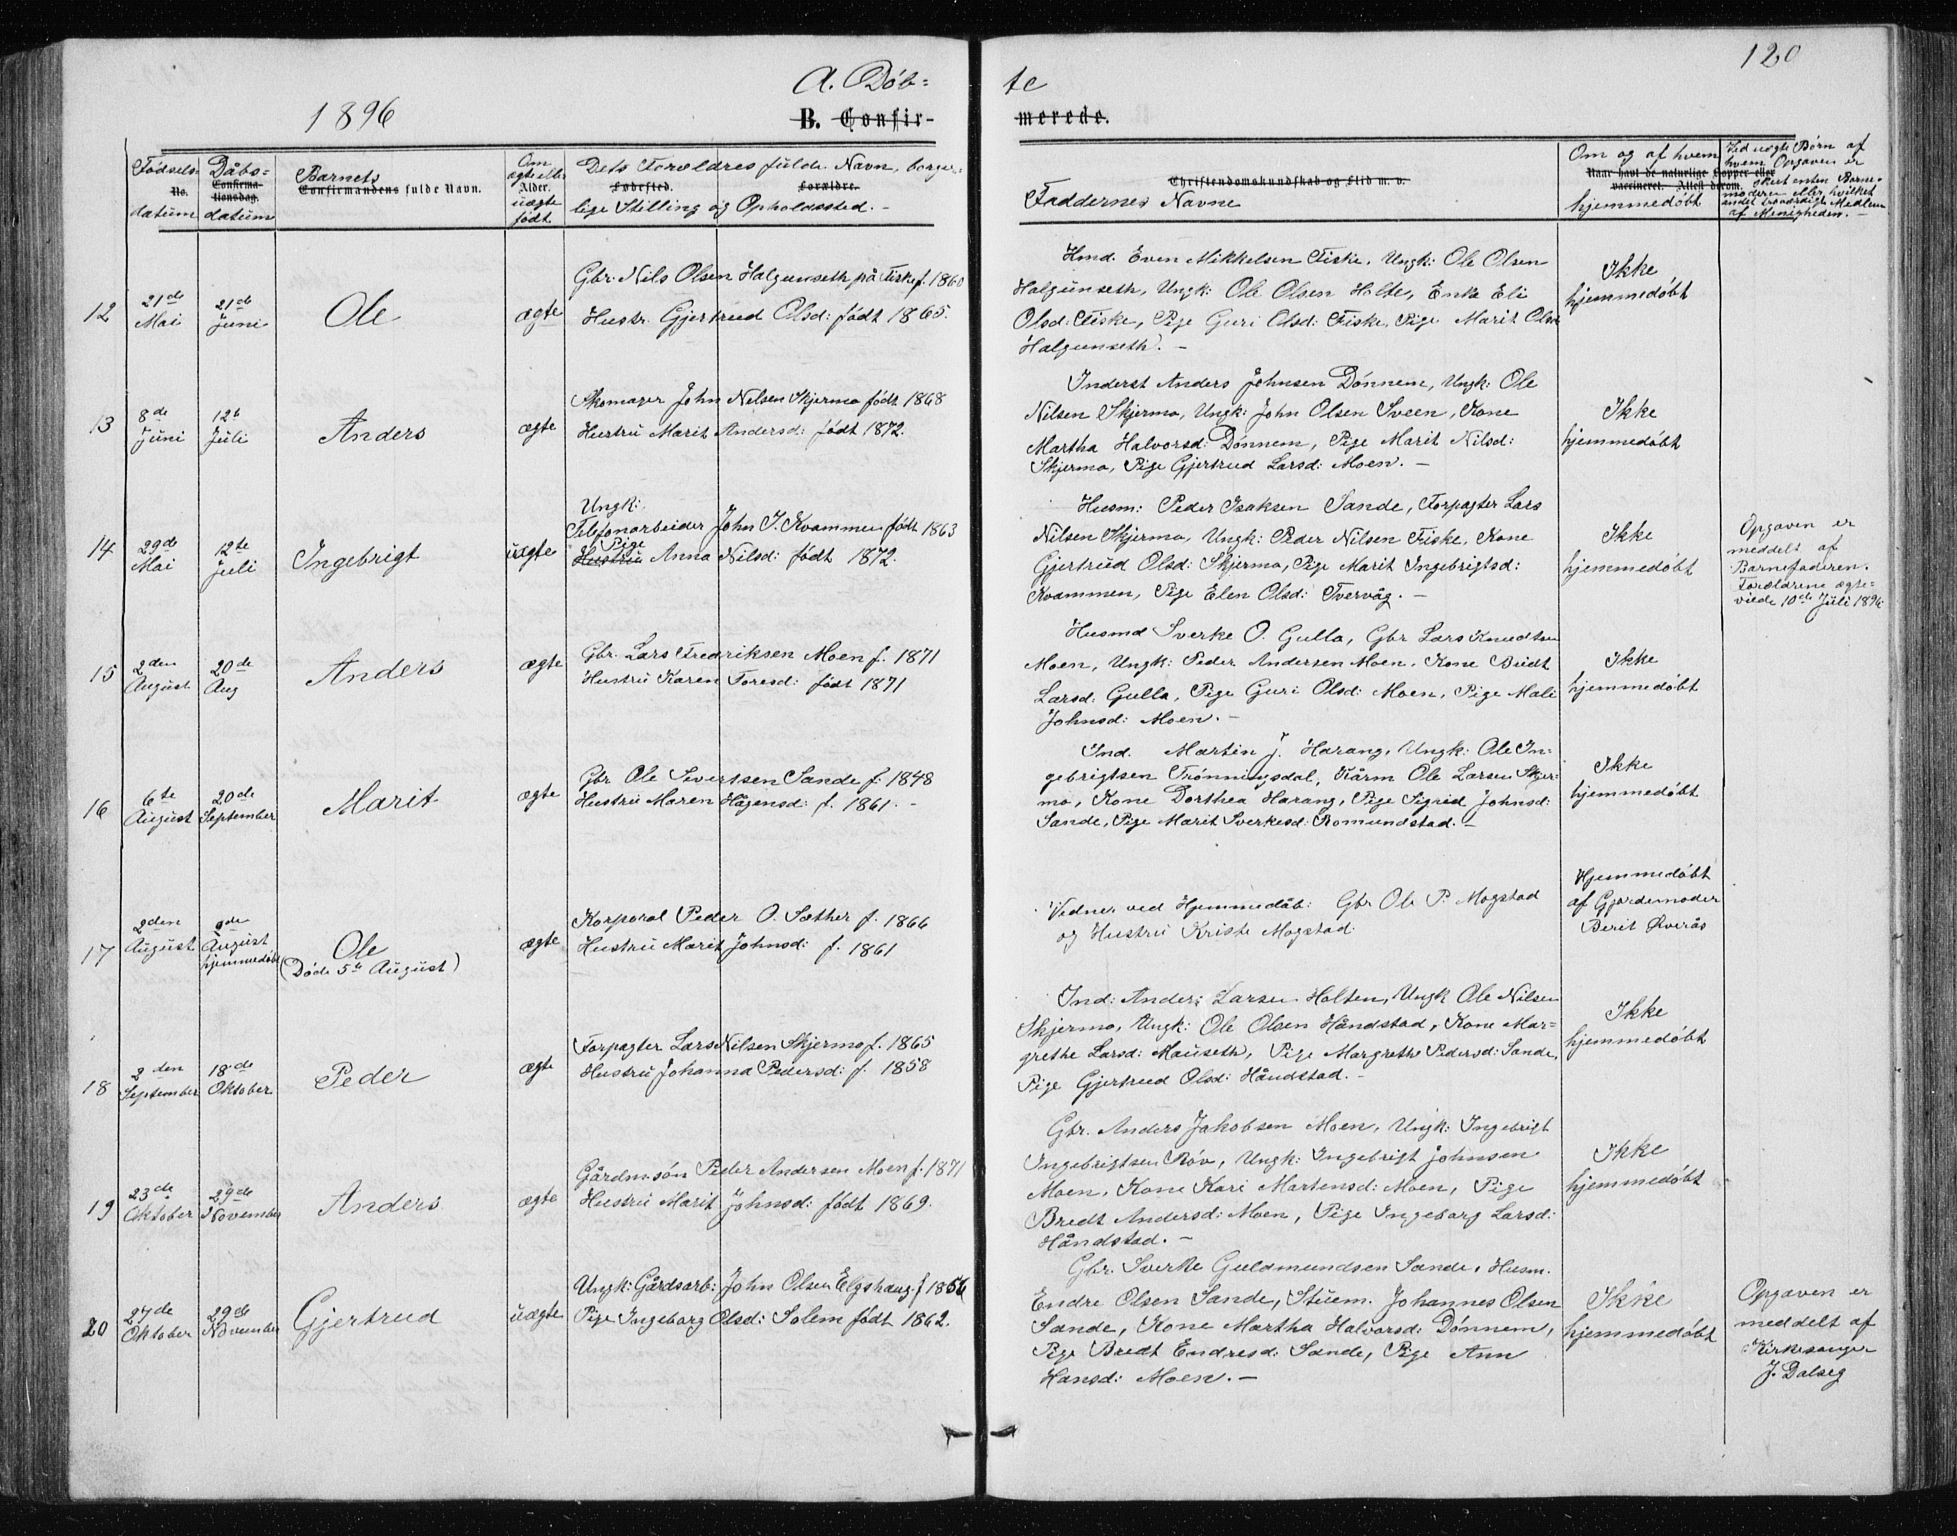 120
A. Døb-
te
1896
B. Confir-
merede.
Fødsels-
No.
datum
Dåbs-
Confirma-
tionsdag.
datum
Barnets
Confirmandens fulde Navn.
Om
ægte eller
Alder.
uægte
født
Dets Forældres fulde Navn, borger-
Fødested. Forældre.
lige Stilling og Opholdssted. -
Christendomskundskab og Flid m. v.
Faddernes Navne
Om og af hvem
Naar havt de naturlige Kopper eller
vaccineret. Attest derom.
hjemmedøbt
Ved uægte Børn af
hvem Opgaven er
skeet enten Barne-
moderen eller hvilket
andet troværdigt Medlem
af Menigheden. -
12
21de
Mai
21de
Juni
Ole
ægte
Gbr. Nils Olsen Halgunseth på Fiske f. 1860
Hustr. Gjertrud Olsd: født 1865.
Hmd. Even Mikkelsen Fiske, Ungk: Ole Olsen
Halgunseth, Ungk: Ole Olsen Holte, Enke Eli
Olsd: Fiske, Pige Guri Olsd: Fiske, Pige Marit Olsd
Halgunseth. -
Ikke
hjemmedøbt
13
8de
Juni
12t
Juli
Anders
ægte
Skomager John Nilsen Skjermo født 1868
Hustru Marit Andersd: født 1872.
Inderst Anders Johnsen Dønnem, Ungk: Ole
Nilsen Skjermo, Ungk: John Olsen Sveen, Kone
Martha Halvorsd: Dønnem, Pige Marit Nilsd:
Skjermo, Pige Gjertrud Larsd: Moen. -
Ikke
hjemmedøbt
14
29de
Mai
12te
Juli
Ingebrigt
uægte
Ungk:
Telefonarbeider John I. Kvammen født 1863
Pige
Hustru Anna Nilsd: født 1872.
Husm: Peder Isaksen Sande, Forpagter Lars
Nilsen Skjermo, Ungk: Peder Nilsen Fiske, Kone
Gjertrud Olsd: Skjermo, Pige Marit Ingebrigtsd:
Kvammen, Pige Elen Olsd: Tvervåg. -
Ikke
hjemmedøbt
Opgaven er
meddelt af
Barnefaderen.
Forældrene ægte-
viede 10de Juli 1896
15
2den
August
20de
Aug
Anders
ægte
Gbr. Lars Fredriksen Moen f. 1871
Hustru Karen Toresd: født 1871
Husmd Sverke O. Gulla, Gbr Lars Knudtsen
Moen, Ungk: Peder Andersen Moen, Kone Bredt
Larsd: Gulla, Pige Guri Olsd: Moen, Pige Mali
Johnsd: Moen. -
Ikke
hjemmedøbt
16
6te
August
20de
September
Marit
ægte
Gbr Ole Sivertsen Sande f. 1848
Hustru Maren Hågensd: f. 1861. -
Ind. Martin J. Harang, Ungk: Ole In-
gebrigtsen Trønningsdal, Kårm Ole Larsen Skjer-
mo, Kone Dorthea Harang, Pige Sigrid Johnsd:
Sande, Pige Marit Sverkesd: Romundstad. -
Ikke
hjemmedøbt
17
2den
August
2de
August
hjemmedøbt
Ole
(Døde 5te August)
ægte
Korporal Peder O. Sæther f. 1866
Hustru Marit Johnsd: f. 1861
Vidner ved Hjemmedåb: Gbr Ole P. Mogstad
og Hustru Kristi Mogstad.
Hjemmedøbt
af Gjordemoder
Berit Øverås
18
2den
September
18de
Oktober
Peder
ægte
Forpagter Lars Nilsen Skjermo f. 1865
Hustru Johanna Pedersd: f. 1858
Ind: Anders Larsen Holten, Ungk Ole Nilsen
Skjermo, Ungk: Ole Olsen Håndstad, Kone Mar-
grethe Larsd: Mauseth, Pige Margrethe Pedersd: Sande,
Pige Gjertrud Olsd: Håndstad. -
Ikke
hjemmedøbt
19
23de
Oktober
29de
November
Anders
ægte
Gårdmsøn Peder Andersen Moen f. 1871
Hustru Marit Johnsd: født 1869.
Gbr. Anders Jakobsen Moen, Ungk: Ingebrigt
Ingebrigtsen Røv, Ungk: Ingebrigt Johnsen
Moen, Kone Kari Martensd: Moen, Pige
Bredt Andersd: Moen, Pige Ingeborg Larsd:
Håndstad. -
Ikke
hjemmedøbt
20
27de
Oktober
29de
November
Gjertrud
uægte
Ungk: Gårdsarb: John Olsen Elgshaug f 1856
Pige Ingeborg Olsd: Solem født 1862.
Gbr. Sverke Guldmundsen Sande, Husm.
Endre Olsen Sande, Stuem. Johannes Olsen
Sande, Kone Martha Halvorsd: Dønnem,
Pige Bredt Endresd: Sande, Pige Ann
Hansd: Moen. -
Ikke
hjemmedøbt
Opgaven er
meddelt af
Kirkesanger
J. Dalseg